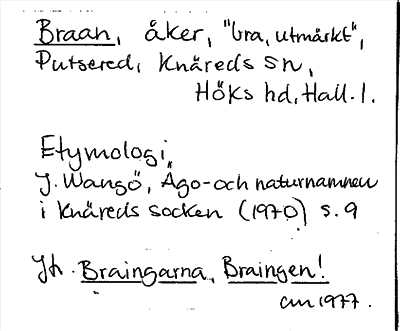 Braan, åker, "bra, utmärkt",
Putsered, Knäreds sn,
Höks hd, Hall. l.
Etymologi,
J. Wangö, Ägo- och naturnamnen
i Knäreds socken (1970) s. 9
Jfr. Braingarna, Braingen!
cm 1977.